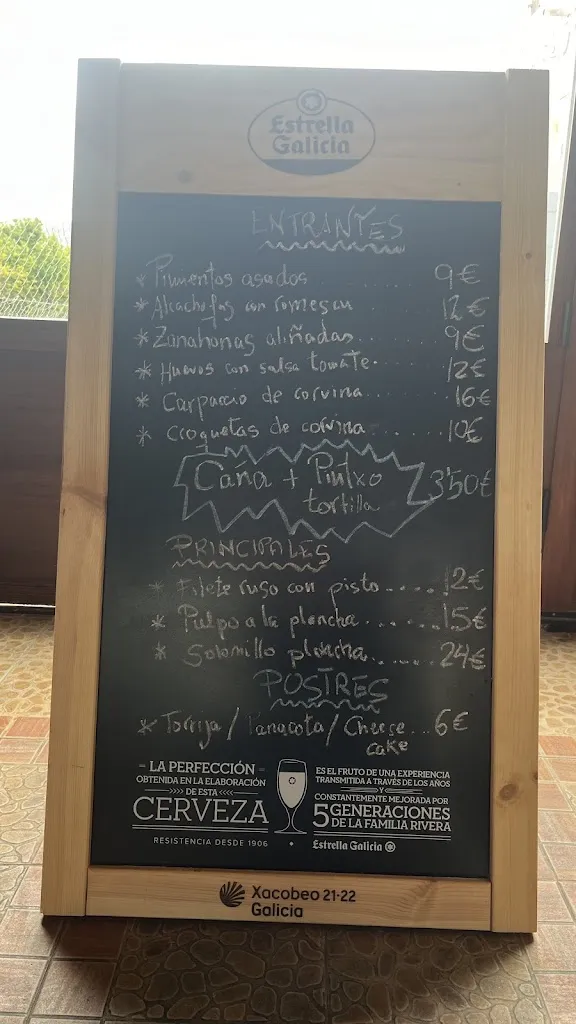 Estrella
Galicia
ENTRANTES
* Pimientos asados ...... 9€
* Alcachofas con romescu 12€
* Zanahorias aliñadas ...... 9€
* Huevos con salsa tomate ...... 12€
* Carpaccio de corvina ...... 16€
* Croquetas de corvina ...... 10€
Caña + Pintxo 3'50€
tortilla
PRINCIPALES
* Filete ruso con pisto .... 12€
* Pulpo a la plancha ...... 15€
* Solomillo plancha ...... 24€
POSTRES
* Torrija / Panacota / Cheese ... 6€
cake
- LA PERFECCIÓN -
OBTENIDA EN LA ELABORACIÓN
DE ESTA
CERVEZA
RESISTENCIA DESDE 1906
ES EL FRUTO DE UNA EXPERIENCIA
TRANSMITIDA A TRAVÉS DE LOS AÑOS
Y
CONSTANTEMENTE MEJORADA POR
5 GENERACIONES
DE LA FAMILIA RIVERA
Estrella Galicia
Xacobeo 21·22
Galicia